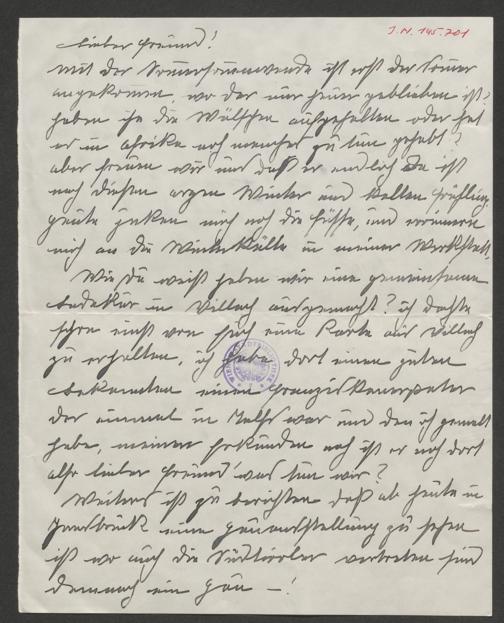 J.N. 145.201
Lieber Freund!
Mit der Sommersonnenwende ist erst der Somer
angekomen, wo der nur heuer geblieben ist?
haben ihn die Wälschen aufgehalten oder hat
er in Afrika noch mancher zu tun gehabt?
aber freuen wir uns daß er endlich da ist
nach diesen argen Winter und kalten Frühling
heute juken mich noch die Füsse, und erinnern
mich an die Winterkälte in meiner Werkstatt.
Wie du weißt haben wir eine gemeinsame
Badekur in Villach ausgemacht? ich dachte
schon einst von dich eine Karte aus Villach
zu erhalten, ich habe dort einen guten
bekannten einen Franziskanerpater
der einmal in Telfs war und den ich gemalt
habe, meinen Erkunden nach ist er noch dort
also lieber Freund was tun wir?
Weiters ist zu berichten daß ab heute in
Innsbruck eine Gauausstellung zu sehen
ist wo auch die Südtiroler vertreten sind
demnach ein Gau —!